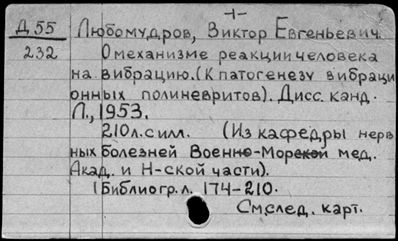 -1-
Д 55 Любомудров, Виктор Евгеньевич
232 О механизме реакции человека
на вибрацию. (К патогенезу вибраци
онных полиневритов). Дисс. канд.
Л., 1953.
210 л. с илл. (Из кафедры нерв
ных болезней Военно-Морской мед.
Акад. и Н-ской части).
Библиогр. л. 174-210.
См. след. карт.